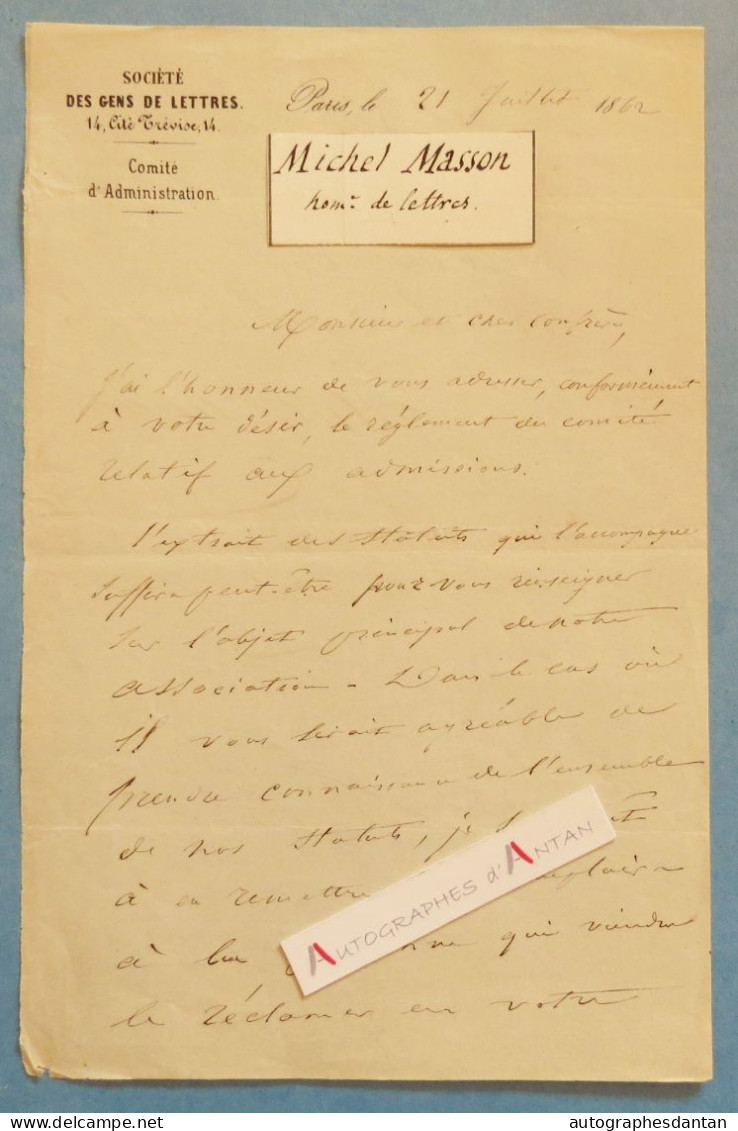 SOCIÉTÉ
DES GENS DE LETTRES.
14, Cité Trévise, 14.
Comité
d'Administration.
Paris, le 21 Juillet 1862
Michel Masson
hom. de lettres.
Monsieur et cher confrère,
J'ai l'honneur de vous adresser, conformément
à votre désir, le règlement du comité
relatif aux admissions.
l'extrait des statuts qui l'accompagne
suffira peut-être pour vous renseigner
sur l'objet principal de notre
association - Dans le cas où
il vous serait agréable de
prendre connaissance de l'ensemble
de nos statuts, je
à en remettre
à la qui viendra
le réclamer en votre
AUTOGRAPHES d'ANTAN
delcampe.net
autographesdantan